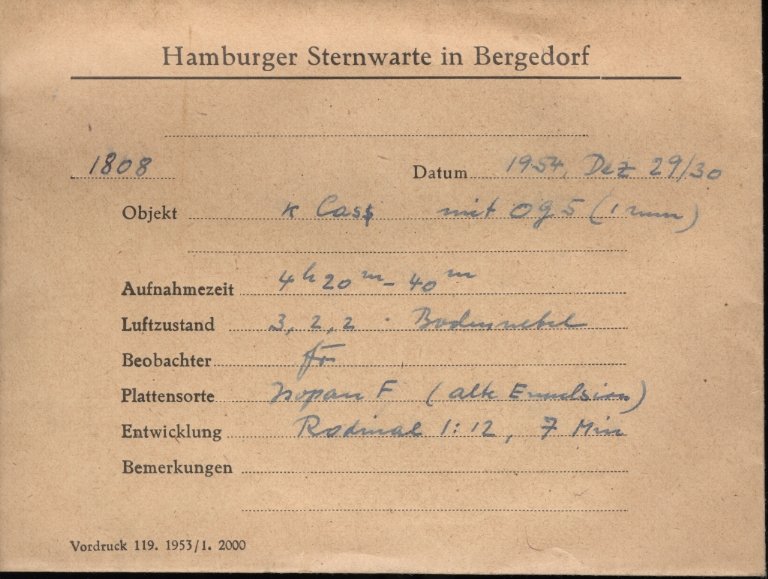 Hamburger Sternwarte in Bergedorf
1808 Datum 1954, Dez 29/30
Objekt κ Cass mit OG5 (1 mm)
Aufnahmezeit 4h 20m - 40m
Luftzustand 3, 2, 2 · Bodennebel
Beobachter
Plattensorte Isopan F (alte Emulsion)
Entwicklung Rodinal 1:12, 7 Min
Bemerkungen
Vordruck 119. 1953/1. 2000